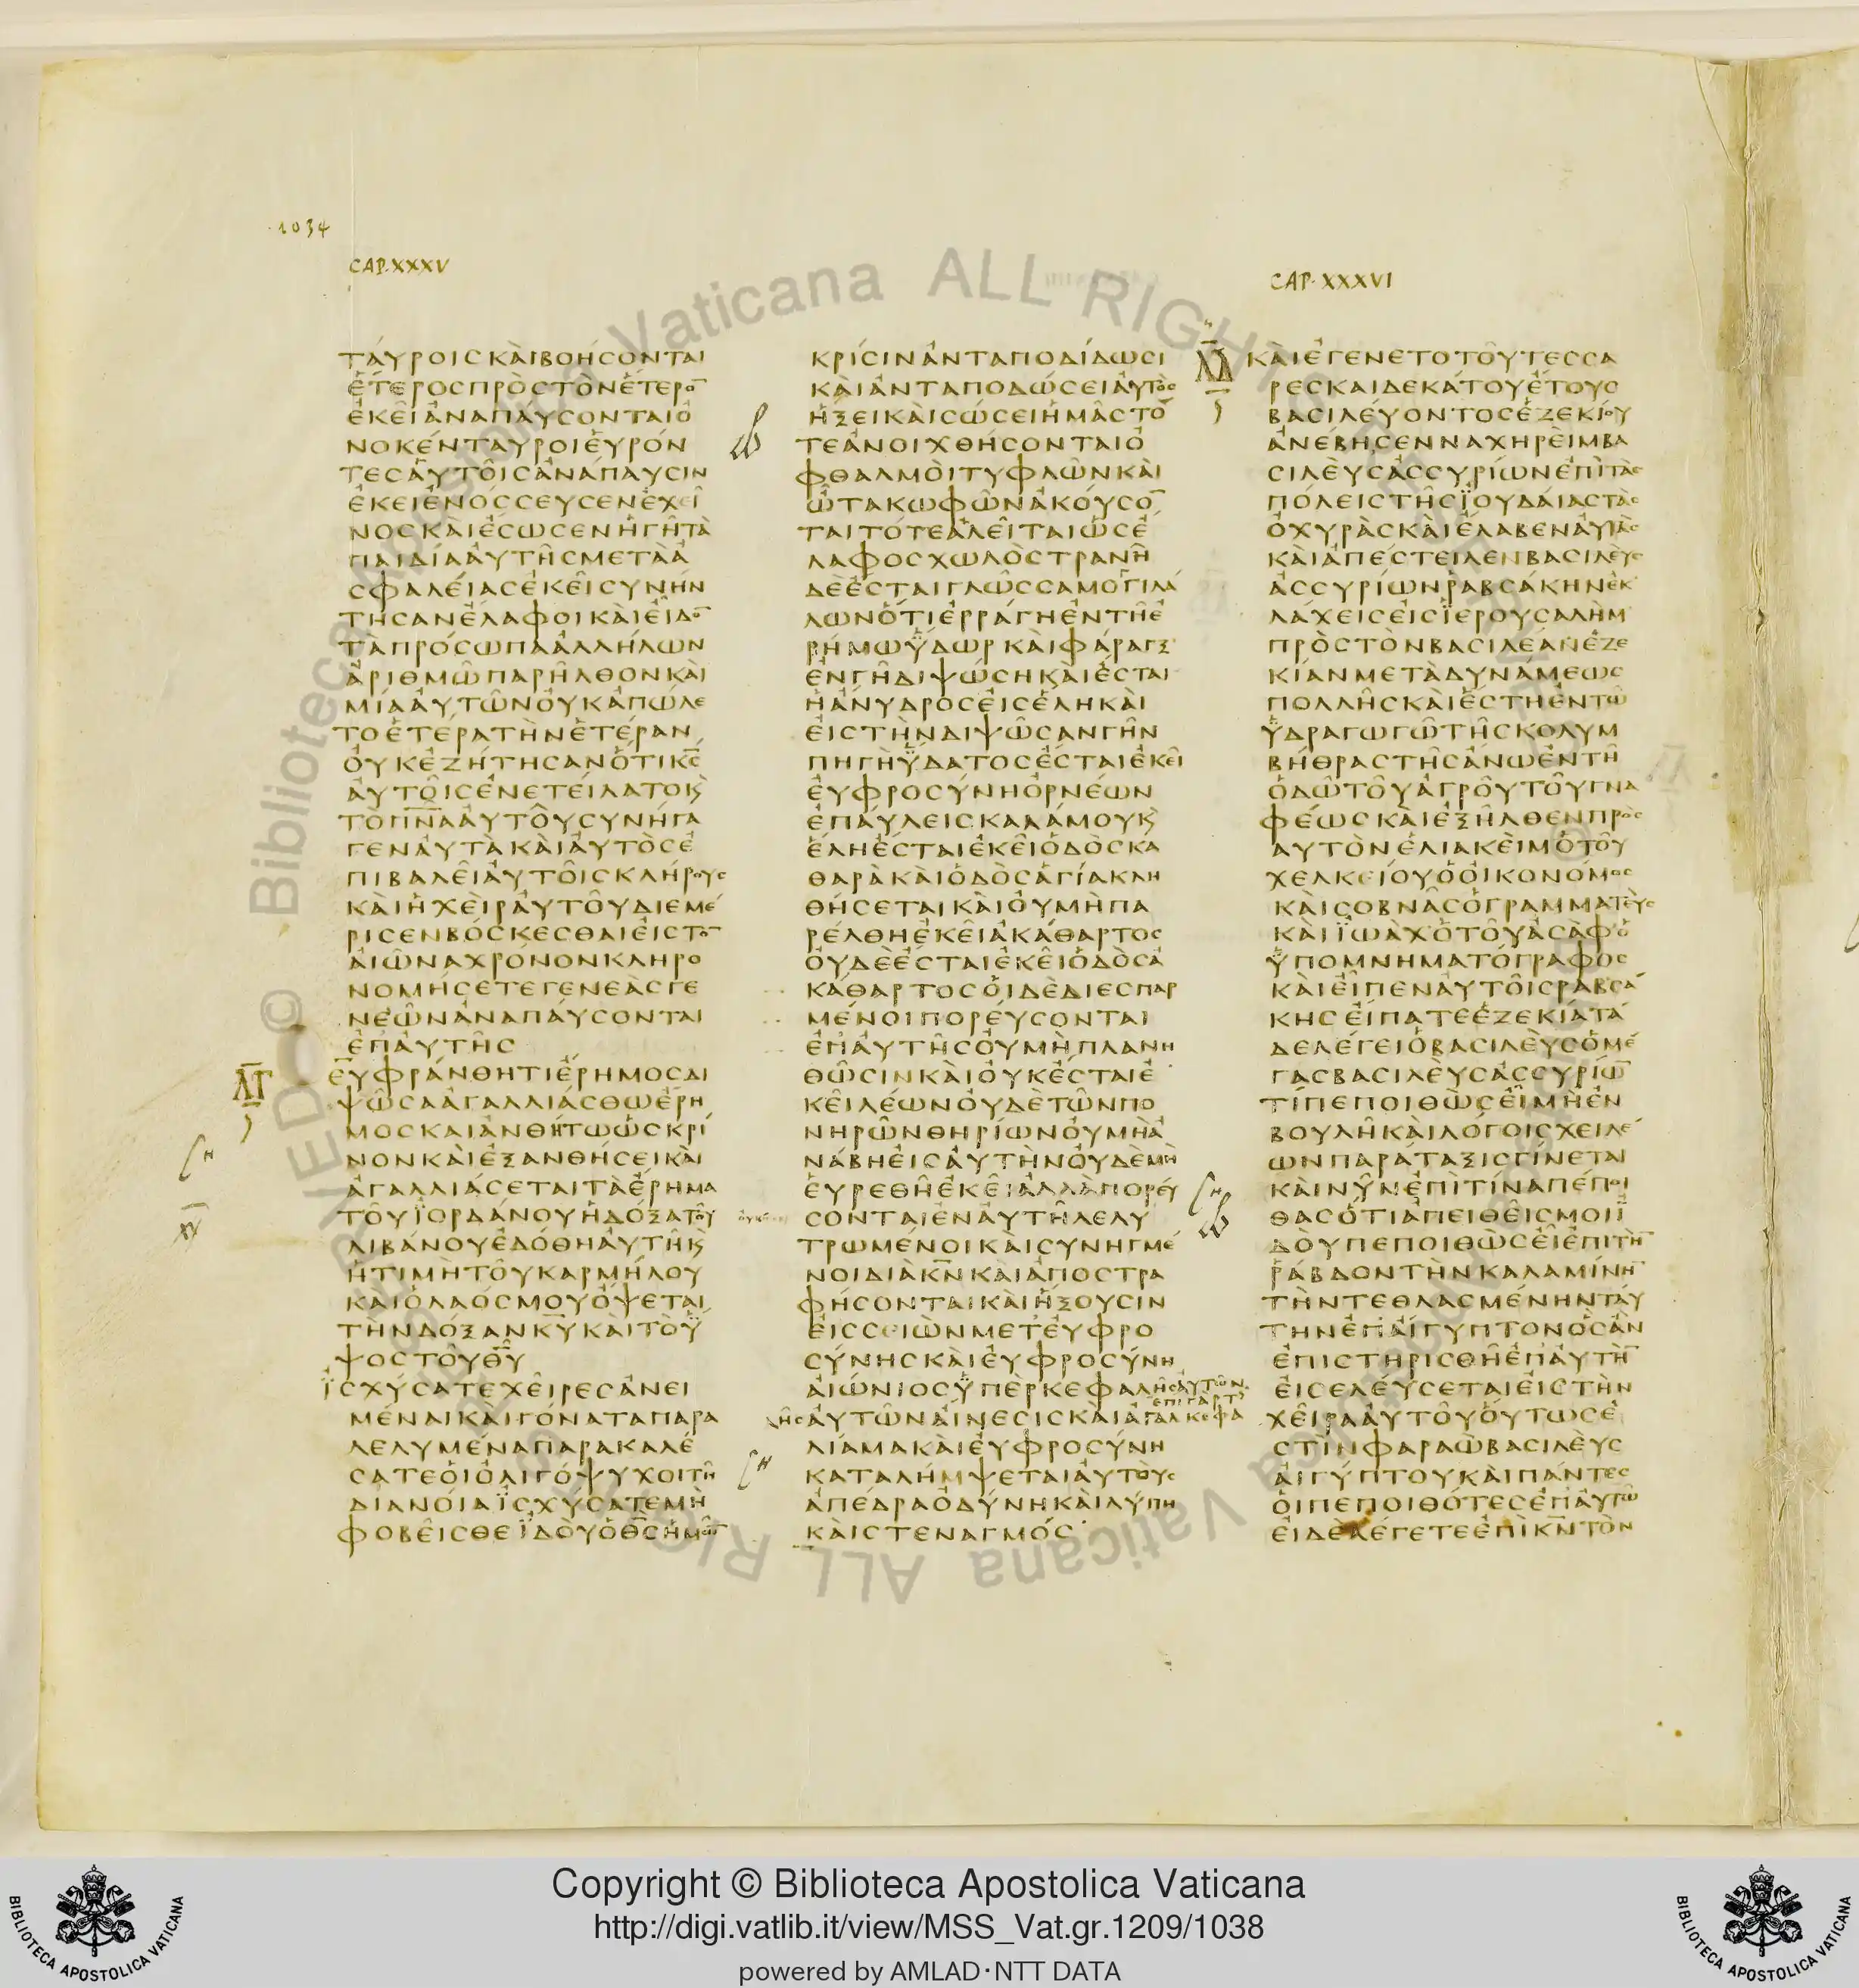 1034
CAP. XXXV
ΤΑΥΡΟΙΣΚΑΙΒΟΗΣΟΝΤΑΙ
ΕΤΕΡΟΣΠΡΟΣΤΟΝΕΤΕΡΟ̅
ΕΚΕΙΑΝΑΠΑΥΣΟΝΤΑΙΟ
ΝΟΚΕΝΤΑΥΡΟΙΕΥΡΟΝ
ΤΕΣΑΥΤΟΙΣΑΝΑΠΑΥΣΙΝ
ΕΚΕΙΕΝΟΣΣΕΥΣΕΝΕΧΕΙ
ΝΟΣΚΑΙΕΣΩΣΕΝΗΓΗΤΑ
ΠΑΙΔΙΑΑΥΤΗΣΜΕΤΑΑ
ΣΦΑΛΕΙΑΣΕΚΕΙΣΥΝΗΝ
ΤΗΣΑΝΕΛΑΦΟΙΚΑΙΕΙΔΟ̅
ΤΑΠΡΟΣΩΠΑΑΛΛΗΛΩΝ
ΑΡΙΘΜΩΠΑΡΗΛΘΟΝΚΑΙ
ΜΙΑΑΥΤΩΝΟΥΚΑΠΩΛΕ
ΤΟΕΤΕΡΑΤΗΝΕΤΕΡΑΝ
ΟΥΚΕΖΗΤΗΣΑΝΟΤΙΚ̅Σ̅
ΑΥΤΟΙΣΕΝΕΤΕΙΛΑΤΟΚ
ΤΟΠ̅Ν̅Α̅ΑΥΤΟΥΣΥΝΗΓΑ
ΓΕΝΑΥΤΑΚΑΙΑΥΤΟΣΕ
ΠΙΒΑΛΕΙΑΥΤΟΙΣΚΛΗΡΟΥΣ
ΚΑΙΗΧΕΙΡΑΥΤΟΥΔΙΕΜΕ
ΡΙΣΕΝΒΟΣΚΕΣΘΑΙΕΙΣΤΟ̅
ΑΙΩΝΑΧΡΟΝΟΝΚΛΗΡΟ
ΝΟΜΗΣΕΤΕΓΕΝΕΑΣΓΕ
ΝΕΩΝΑΝΑΠΑΥΣΟΝΤΑΙ
ΕΠΑΥΤΗΣ
ΛΓ
ΕΥΦΡΑΝΘΗΤΙΕΡΗΜΟΣΔΙ
ΨΩΣΑΑΓΑΛΛΙΑΣΘΩΕΡΗ
ΜΟΣΚΑΙΑΝΘΗΤΩΩΣΚΡΙ
ΝΟΝΚΑΙΕΞΑΝΘΗΣΕΙΚΑΙ
ΑΓΑΛΛΙΑΣΕΤΑΙΤΑΕΡΗΜΑ
ΤΟΥΙΟΡΔΑΝΟΥΗΔΟΞΑΤΟΥ
ΛΙΒΑΝΟΥΕΔΟΘΗΑΥΤΗΚ
ΗΤΙΜΗΤΟΥΚΑΡΜΗΛΟΥ
ΚΑΙΟΛΑΟΣΜΟΥΟΨΕΤΑΙ
ΤΗΝΔΟΞΑΝΚ̅Υ̅ΚΑΙΤΟΥ
ΨΟΣΤΟΥΘ̅Υ̅
ΙΣΧΥΣΑΤΕΧΕΙΡΕΣΑΝΕΙ
ΜΕΝΑΙΚΑΙΓΟΝΑΤΑΠΑΡΑ
ΛΕΛΥΜΕΝΑΠΑΡΑΚΑΛΕ
ΣΑΤΕΟΙΟΛΙΓΟΨΥΧΟΙΤΗ
ΔΙΑΝΟΙΑΙΣΧΥΣΑΤΕΜΗ
ΦΟΒΕΙΣΘΕΙΔΟΥΟΘ̅Σ̅ΗΜΩ̅
ΚΡΙΣΙΝΑΝΤΑΠΟΔΙΔΩΣΙ
ΚΑΙΑΝΤΑΠΟΔΩΣΕΙΑΥΤΟΣ
ΗΞΕΙΚΑΙΣΩΣΕΙΗΜΑΣΤΟ
ΤΕΑΝΟΙΧΘΗΣΟΝΤΑΙΟ
ΦΘΑΛΜΟΙΤΥΦΛΩΝΚΑΙ
ΩΤΑΚΩΦΩΝΑΚΟΥΣΟ̅
ΤΑΙΤΟΤΕΑΛΕΙΤΑΙΩΣΕ
ΛΑΦΟΣΧΩΛΟΣΤΡΑΝΗ
ΔΕΕΣΤΑΙΓΛΩΣΣΑΜΟΓΙΛΑ
ΛΩΝΟΤΙΕΡΡΑΓΗΕΝΤΗΕ
ΡΗΜΩΥΔΩΡΚΑΙΦΑΡΑΓΞ
ΕΝΓΗΔΙΨΩΣΗΚΑΙΕΣΤΑΙ
ΗΑΝΥΔΡΟΣΕΙΣΕΛΗΚΑΙ
ΕΙΣΤΗΝΔΙΨΩΣΑΝΓΗΝ
ΠΗΓΗΥΔΑΤΟΣΕΣΤΑΙΕΚΕΙ
ΕΥΦΡΟΣΥΝΗΟΡΝΕΩΝ
ΕΠΑΥΛΕΙΣΚΑΛΑΜΟΥΚ
ΕΛΗΕΣΤΑΙΕΚΕΙΟΔΟΣΚΑ
ΘΑΡΑΚΑΙΟΔΟΣΑΓΙΑΚΛΗ
ΘΗΣΕΤΑΙΚΑΙΟΥΜΗΠΑ
ΡΕΛΘΗΕΚΕΙΑΚΑΘΑΡΤΟΣ
ΟΥΔΕΕΣΤΑΙΕΚΕΙΟΔΟΣΑ
ΚΑΘΑΡΤΟΣΟΙΔΕΔΙΕΣΠΑΡ
ΜΕΝΟΙΠΟΡΕΥΣΟΝΤΑΙ
ΕΠΑΥΤΗΣΟΥΜΗΠΛΑΝΗ
ΘΩΣΙΝΚΑΙΟΥΚΕΣΤΑΙΕ
ΚΕΙΛΕΩΝΟΥΔΕΤΩΝΠΟ
ΝΗΡΩΝΘΗΡΙΩΝΟΥΜΗΑ
ΝΑΒΗΕΙΣΑΥΤΗΝΟΥΔΕΜΗ
ΕΥΡΕΘΗΕΚΕΙΑΛΛΑΠΟΡΕΥ
ΣΟΝΤΑΙΕΝΑΥΤΗΛΕΛΥ
ΤΡΩΜΕΝΟΙΚΑΙΣΥΝΗΓΜΕ
ΝΟΙΔΙΑΚ̅Ν̅ΚΑΙΑΠΟΣΤΡΑ
ΦΗΣΟΝΤΑΙΚΑΙΗΞΟΥΣΙΝ
ΕΙΣΣΕΙΩΝΜΕΤΕΥΦΡΟ
ΣΥΝΗΣΚΑΙΕΥΦΡΟΣΥΝΗ
ΑΙΩΝΙΟΣΥΠΕΡΚΕΦΑΛΗΣΑΥΤΩΝ
ΕΠΙΓΑΡΤ
ΛΗΣΑΥΤΩΝΑΙΝΕΣΙΣΚΑΙΑΓΑΛ ΚΕΦΑ
ΛΙΑΜΑΚΑΙΕΥΦΡΟΣΥΝΗ
ΚΑΤΑΛΗΜΨΕΤΑΙΑΥΤΟΥΣ
ΑΠΕΔΡΑΟΔΥΝΗΚΑΙΛΥΠΗ
ΚΑΙΣΤΕΝΑΓΜΟΣ
CAP. XXXVI
ΛΔ
ΚΑΙΕΓΕΝΕΤΟΤΟΥΤΕΣΣΑ
ΡΕΣΚΑΙΔΕΚΑΤΟΥΕΤΟΥΣ
ΒΑΣΙΛΕΥΟΝΤΟΣΕΖΕΚΙΟΥ
ΑΝΕΒΗΣΕΝΝΑΧΗΡΕΙΜΒΑ
ΣΙΛΕΥΣΑΣΣΥΡΙΩΝΕΠΙΤΑΣ
ΠΟΛΕΙΣΤΗΣΙΟΥΔΑΙΑΣΤΑΣ
ΟΧΥΡΑΣΚΑΙΕΛΑΒΕΝΑΥΤΑΣ
ΚΑΙΑΠΕΣΤΕΙΛΕΝΒΑΣΙΛΕΥΣ
ΑΣΣΥΡΙΩΝΡΑΒΣΑΚΗΝΕΚ
ΛΑΧΕΙΣΕΙΣΙΕΡΟΥΣΑΛΗΜ
ΠΡΟΣΤΟΝΒΑΣΙΛΕΑΝΕΖΕ
ΚΙΑΝΜΕΤΑΔΥΝΑΜΕΩΣ
ΠΟΛΛΗΣΚΑΙΕΣΤΗΕΝΤΩ
ΥΔΡΑΓΩΓΩΤΗΣΚΟΛΥΜ
ΒΗΘΡΑΣΤΗΣΑΝΩΕΝΤΗ
ΟΔΩΤΟΥΑΓΡΟΥΤΟΥΓΝΑ
ΦΕΩΣΚΑΙΕΞΗΛΘΕΝΠΡΟΣ
ΑΥΤΟΝΕΛΙΑΚΕΙΜΟΤΟΥ
ΧΕΛΚΕΙΟΥΟΟΙΚΟΝΟΜΟΣ
ΚΑΙΣΟΒΝΑΣΟΓΡΑΜΜΑΤΕΥΣ
ΚΑΙΙΩΑΧΟΤΟΥΑΣΑΦΟ
ΥΠΟΜΝΗΜΑΤΟΓΡΑΦΟΣ
ΚΑΙΕΙΠΕΝΑΥΤΟΙΣΡΑΒΣΑ
ΚΗΣΕΙΠΑΤΕΕΖΕΚΙΑΤΑ
ΔΕΛΕΓΕΙΟΒΑΣΙΛΕΥΣΟΜΕ
ΓΑΣΒΑΣΙΛΕΥΣΑΣΣΥΡΙΩ̅
ΤΙΠΕΠΟΙΘΩΣΕΙΜΗΕΝ
ΒΟΥΛΗΚΑΙΛΟΓΟΙΣΧΕΙΛΕ
ΩΝΠΑΡΑΤΑΞΙΣΓΙΝΕΤΑΙ
ΚΑΙΝΥΝΕΠΙΤΙΝΑΠΕΠΟΙ
ΘΑΣΟΤΙΑΠΕΙΘΕΙΣΜΟΙΙ
ΔΟΥΠΕΠΟΙΘΩΣΕΙΕΠΙΤΗ̅
ΡΑΒΔΟΝΤΗΝΚΑΛΑΜΙΝΗ̅
ΤΗΝΤΕΘΛΑΣΜΕΝΗΝΤΑΥ
ΤΗΝΕΠΑΙΓΥΠΤΟΝΟΣΑΝ
ΕΠΙΣΤΗΡΙΣΘΗΕΠΑΥΤΗ̅
ΕΙΣΕΛΕΥΣΕΤΑΙΕΙΣΤΗΝ
ΧΕΙΡΑΑΥΤΟΥΟΥΤΩΣΕ
ΣΤΙΝΦΑΡΑΩΒΑΣΙΛΕΥΣ
ΑΙΓΥΠΤΟΥΚΑΙΠΑΝΤΕΣ
ΟΙΠΕΠΟΙΘΟΤΕΣΕΠΑΥΤΩ
ΕΙΔΕΛΕΓΕΤΕΕΠΙΚ̅Ν̅ΤΟΝ
© Biblioteca Apostolica Vaticana ALL RIGHTS RESERVED
Copyright © Biblioteca Apostolica Vaticana
http://digi.vatlib.it/view/MSS_Vat.gr.1209/1038
powered by AMLAD·NTT DATA
BIBLIOTECA APOSTOLICA VATICANA
BIBLIOTECA APOSTOLICA VATICANA